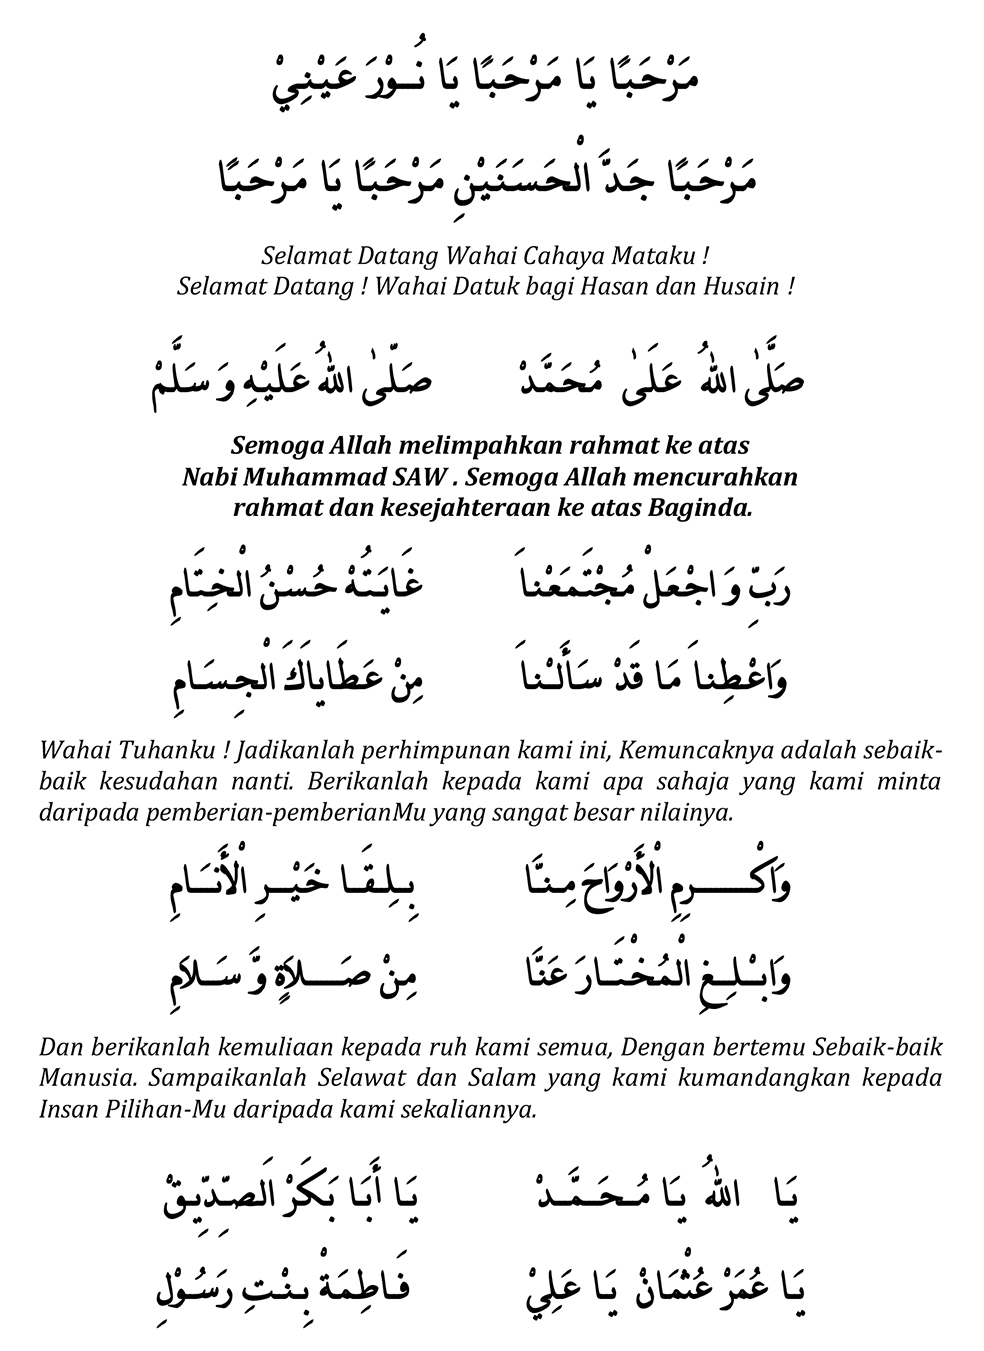 مَرْحَبًا يَا مَرْحَبًا يَا نُوْرَ عَيْنِيْ
مَرْحَبًا جَدَّ الْحَسَنَيْنِ مَرْحَبًا يَا مَرْحَبًا
Selamat Datang Wahai Cahaya Mataku !
Selamat Datang ! Wahai Datuk bagi Hasan dan Husain !
صَلَّىٰ اللهُ عَلَىٰ مُحَمَّدْ صَلّىٰ اللهُ عَلَيْهِ وَ سَلَّمْ
Semoga Allah melimpahkan rahmat ke atas
Nabi Muhammad SAW . Semoga Allah mencurahkan
rahmat dan kesejahteraan ke atas Baginda.
رَبِّ وَ اجْعَلْ مُجْتَمَعْناَ غَايَتُهْ حُسْنُ الْخِتَامِ
وَاعْطِناَ مَا قَدْ سَأَلْناَ مِنْ عَطَاياَكَ الْجِسَامِ
Wahai Tuhanku ! Jadikanlah perhimpunan kami ini, Kemuncaknya adalah sebaik-
baik kesudahan nanti. Berikanlah kepada kami apa sahaja yang kami minta
daripada pemberian-pemberianMu yang sangat besar nilainya.
وَاكْرِمِ الْأَرْوَاحَ مِنَّا بِلِقَا خَيْرِ الْأَنَامِ
وَابْلِغِ الْمُخْتَارَ عَنَّا مِنْ صَلاَةٍ وَّ سَلاَمِ
Dan berikanlah kemuliaan kepada ruh kami semua, Dengan bertemu Sebaik-baik
Manusia. Sampaikanlah Selawat dan Salam yang kami kumandangkan kepada
Insan Pilihan-Mu daripada kami sekaliannya.
يَا اللهُ يَا مُحَمَّدْ يَا أَبَا بَكَرْ اَلصِّدِّيِقْ
يَا عُمَرْ عُثْمَانْ يَا عَلِيْ فَاطِمَةْ بِنْتِ رَسُوْلِ